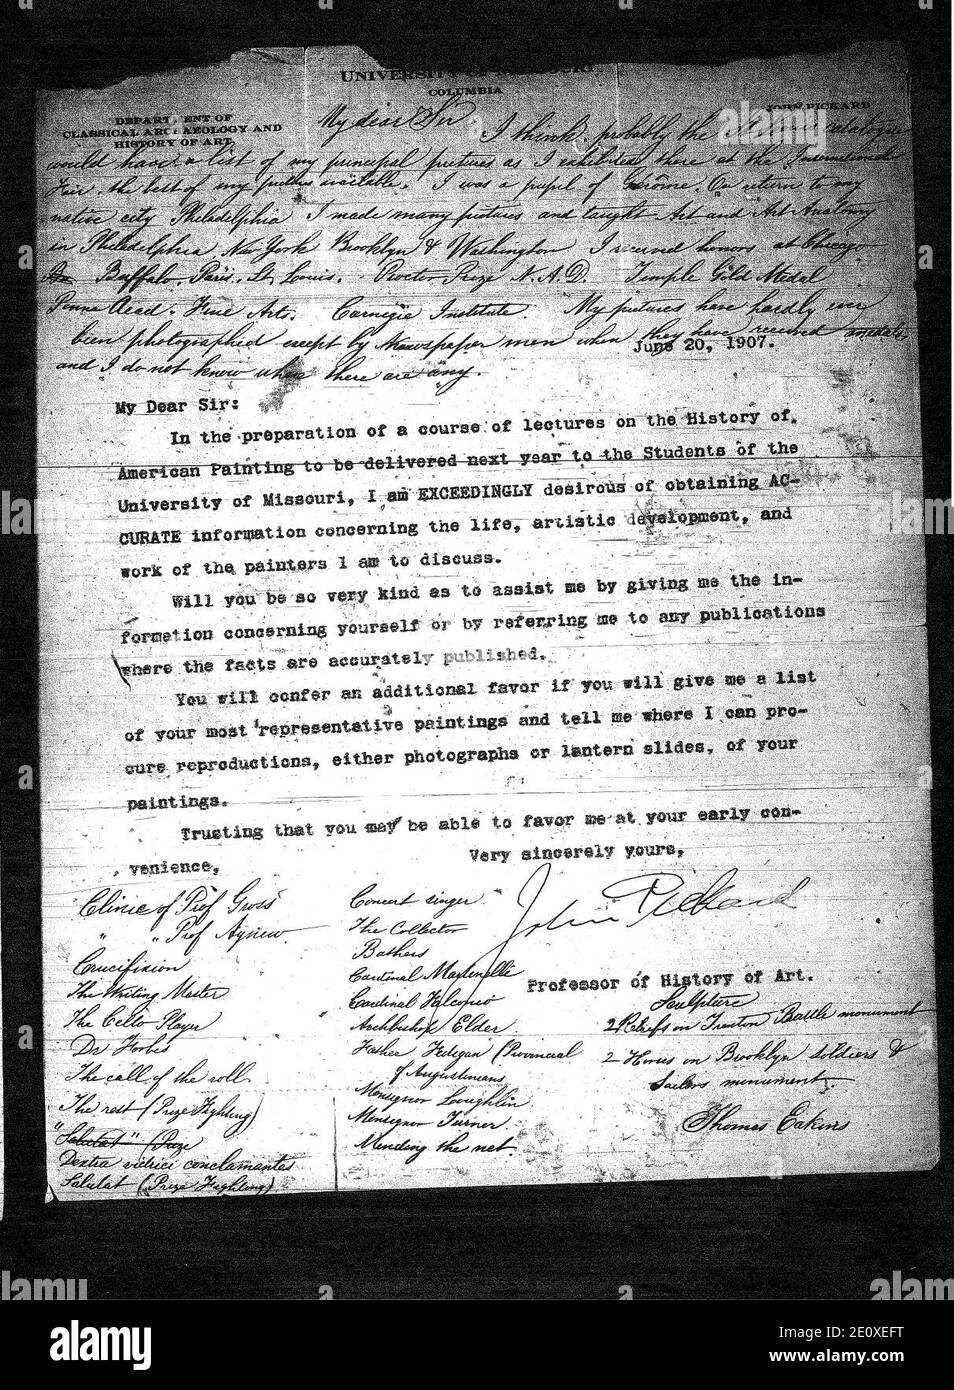 UNIVERSITY OF MISSOURI
COLUMBIA
DEPARTMENT OF
CLASSICAL ARCHAEOLOGY AND
HISTORY OF ART
JOHN PICKARD
My dear Sir
I think probably the St Louis catalogue
would have a list of my principal pictures as I exhibited there at the International
Fair, the best of my pictures available. I was a pupil of Gérôme. On return to my
native city Philadelphia I made many pictures and taught Art and Art Anatomy
in Philadelphia, New York Brooklyn & Washington I received honors at Chicago
Buffalo, Paris, St. Louis. Proctor Prize N.A.D. Temple Gold Medal
Penna Acad. Fine Arts. Carnegie Institute. My pictures have hardly ever
been photographed except by newspaper men when they have received medals,
and I do not know where there are any.
June 20, 1907.
My Dear Sir:
In the preparation of a course of lectures on the History of
American Painting to be delivered next year to the Students of the
University of Missouri, I am EXCEEDINGLY desirous of obtaining AC-
CURATE information concerning the life, artistic development, and
work of the painters I am to discuss.
Will you be so very kind as to assist me by giving me the in-
formation concerning yourself or by referring me to any publications
where the facts are accurately published.
You will confer an additional favor if you will give me a list
of your most representative paintings and tell me where I can pro-
cure reproductions, either photographs or lantern slides, of your
paintings.
Trusting that you may be able to favor me at your early con-
venience,
Very sincerely yours,
John Pickard
Professor of History of Art.
Clinic of Prof Gross
" " Prof Agnew.
Crucifixion
The Writing Master
The Cello Player
Dr Forbes
The call of the roll
The rest (Prize Fighting)
"Salutat" (Prize
Dextra victrici conclamantes
Salutat (Prize Fighting)
Concert singer
The Collector
Bathers
Cardinal Martinelli
Cardinal Falconio
Archbishop Elder
Father Fedigan (Provincial
of Augustinians
Monsignor Loughlin
Monsignor Turner
Mending the net.
Sculpture
2 Reliefs on Trenton Battle monument
2 Horses on Brooklyn Soldiers &
Sailors monument.
Thomas Eakins
alamy
Image ID: 2E0XEFT
www.alamy.com